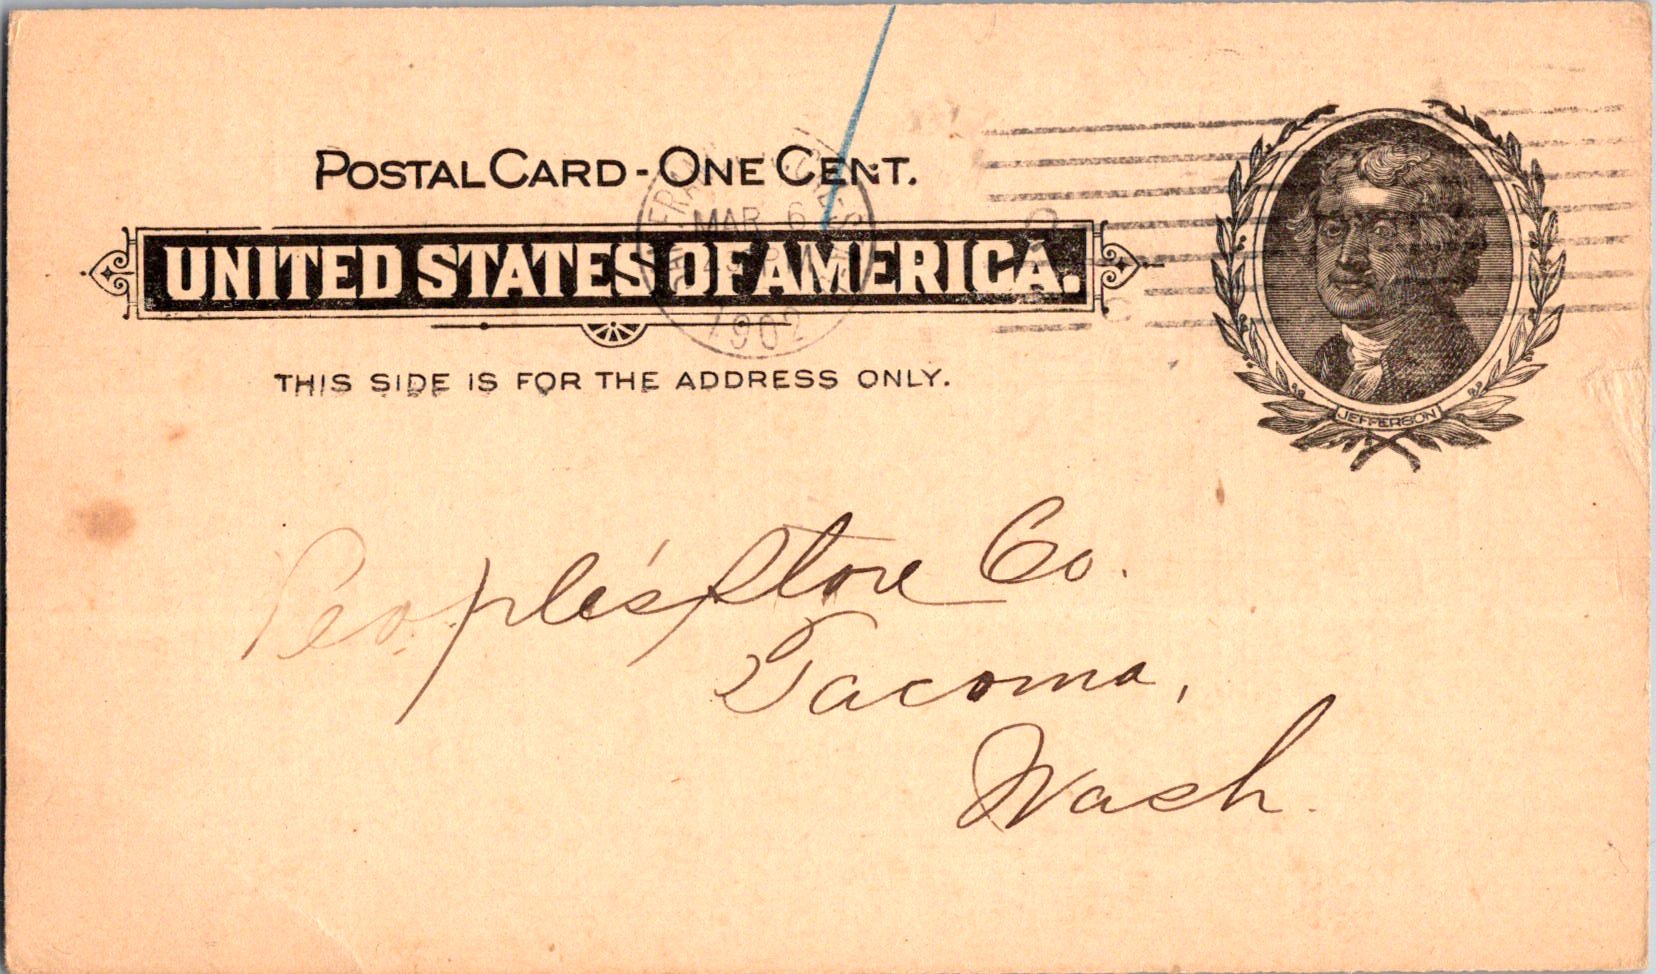 POSTAL CARD - ONE CENT.
UNITED STATES OF AMERICA.
MAR 6
1902
THIS SIDE IS FOR THE ADDRESS ONLY.
JEFFERSON
People's Store Co.
Tacoma,
Wash.